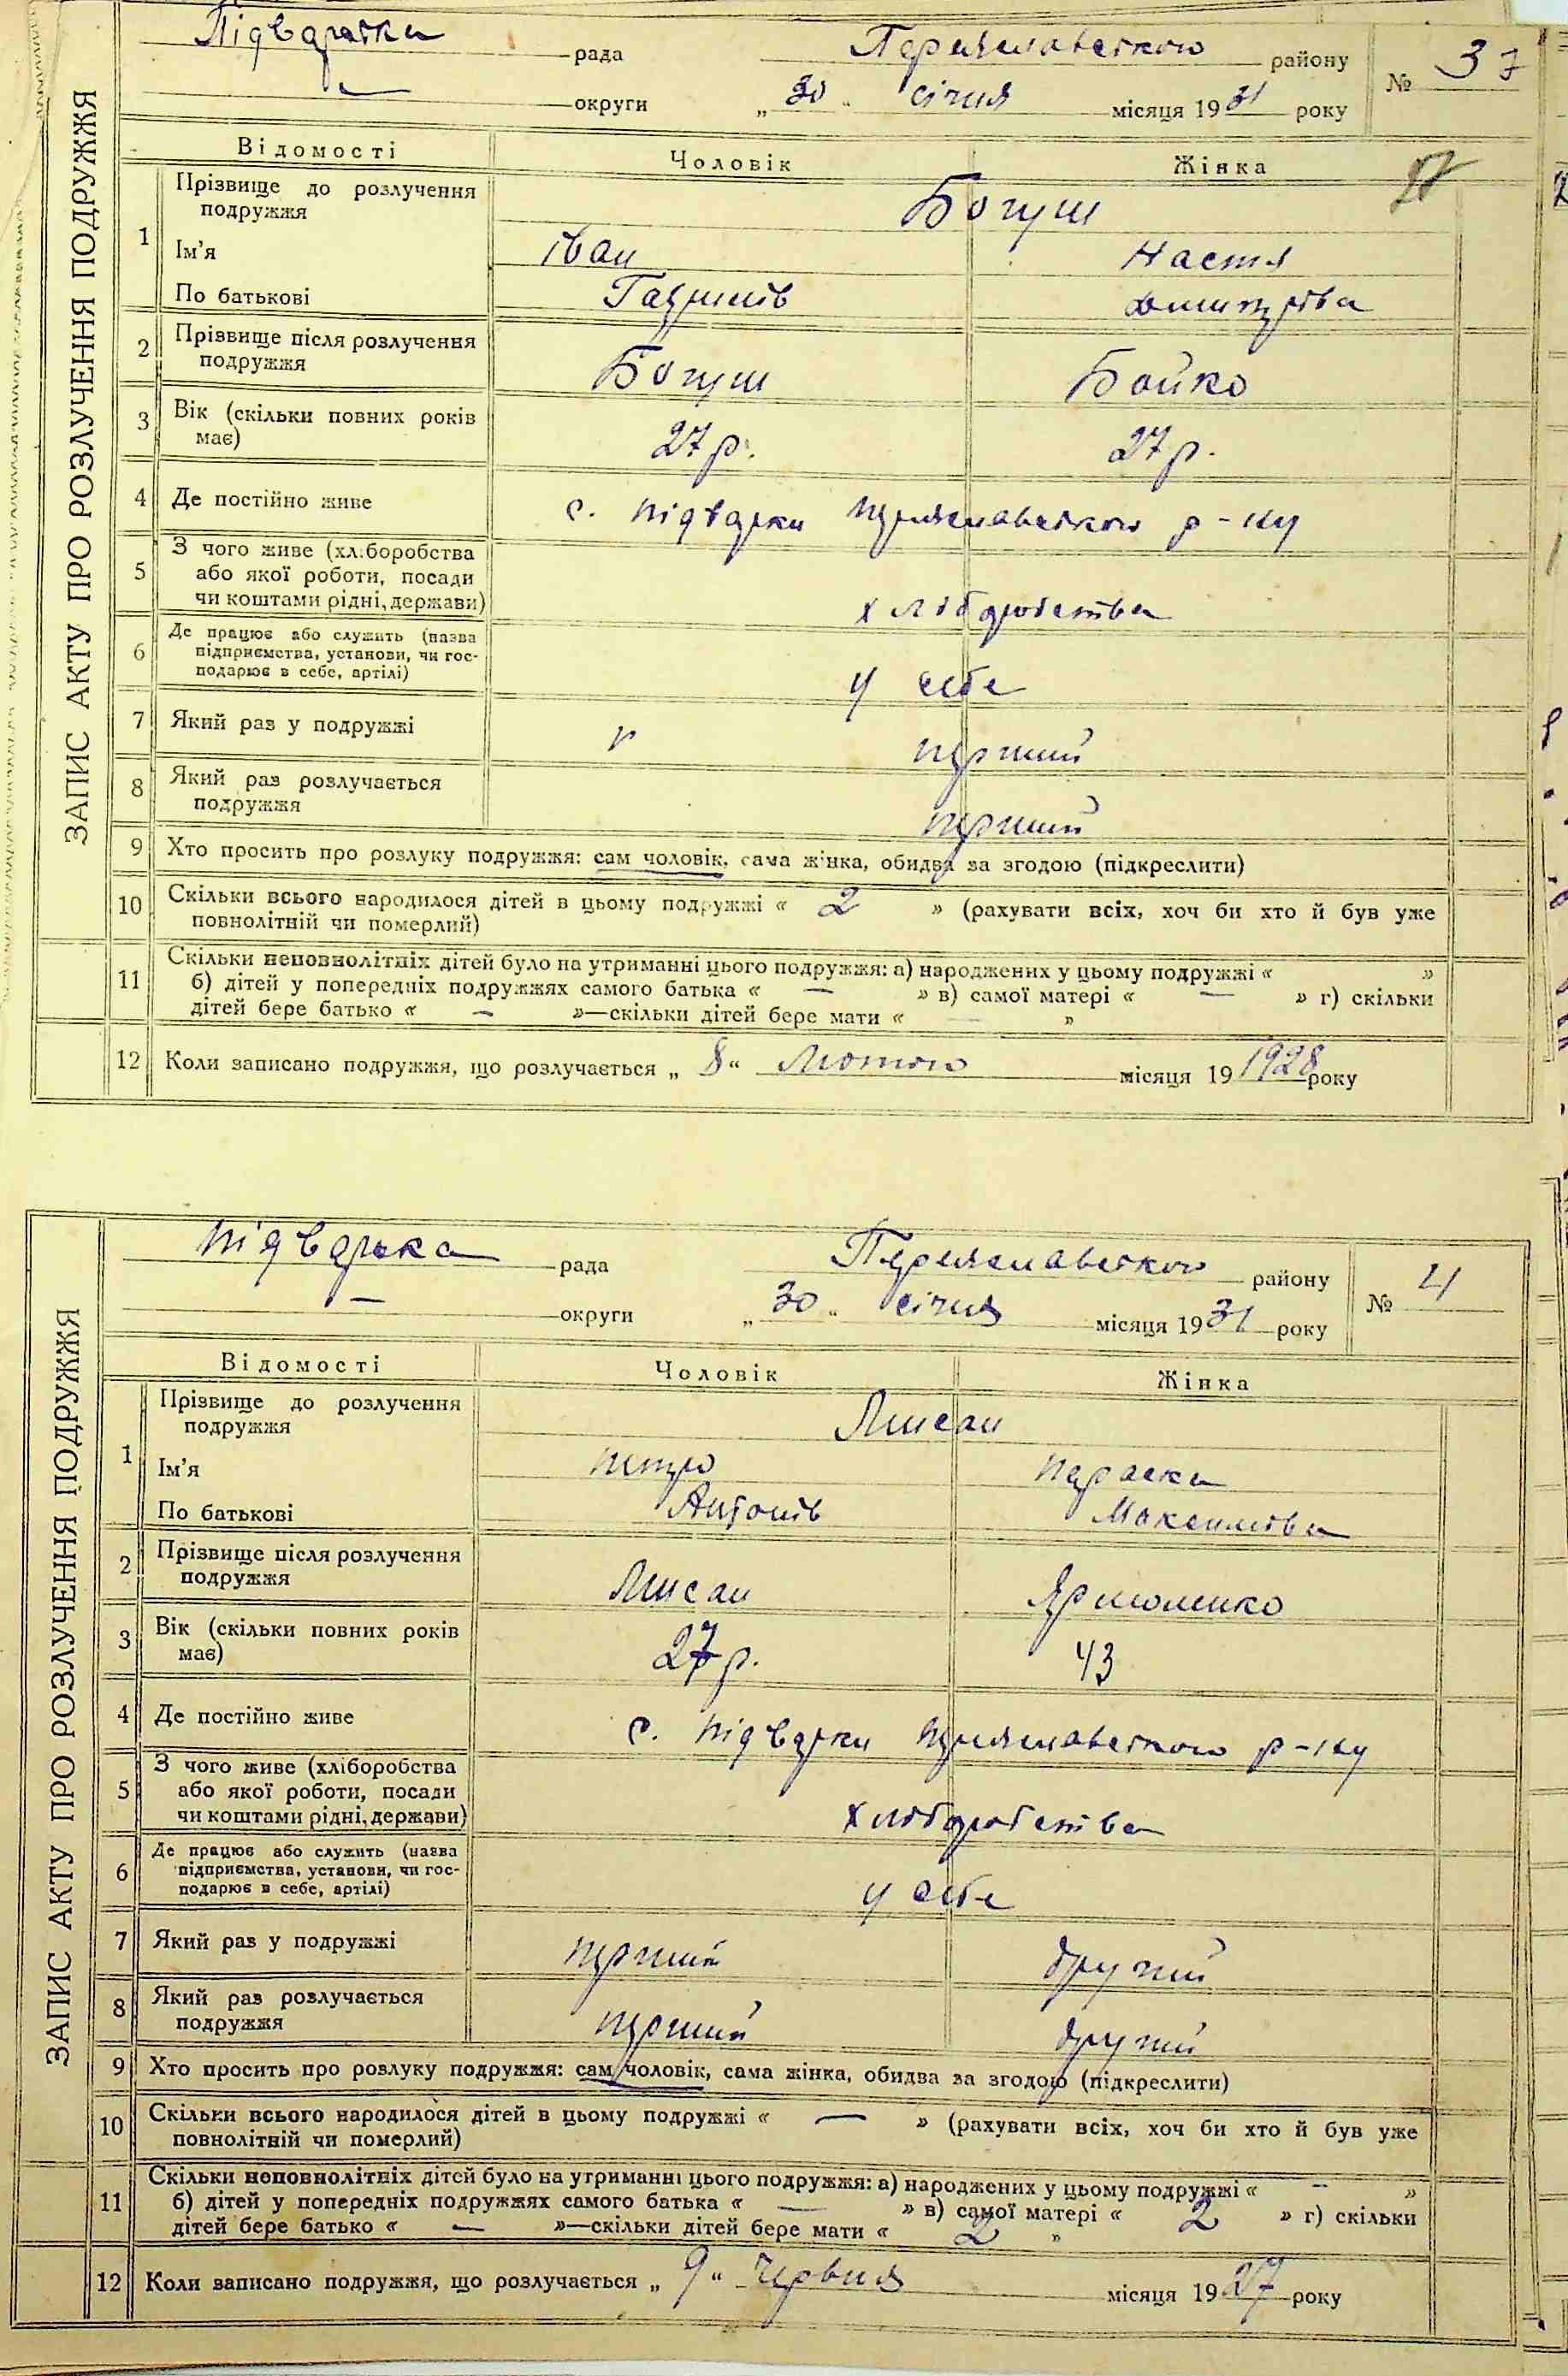 ЗАПИС АКТУ ПРО РОЗЛУЧЕННЯ ПОДРУЖЖЯ
рада Переяславського району № 3
округи „30“ січня місяця 1931 року
Відомості Чоловік Жінка
1 Прізвище до розлучення подружжя Богуш
Ім’я Іван Настя
По батькові Дмитрова
2 Прізвище після розлучення подружжя Богуш Бойко
3 Вік (скільки повних років має) 27 р. 27 р.
4 Де постійно живе с. Підварки Переяславського р-ну
5 З чого живе (хліборобства або якої роботи, посади чи коштами рідні, держави) хліборобства
6 Де працює або служить (назва підприємства, установи, чи господарює в себе, артілі) у себе
7 Який раз у подружжі перший
8 Який раз розлучається подружжя перший
9 Хто просить про розлуку подружжя: сам чоловік, сама жінка, обидва за згодою (підкреслити)
10 Скільки всього народилося дітей в цьому подружжі « 2 » (рахувати всіх, хоч би хто й був уже
повнолітній чи померлий)
11 Скільки неповнолітніх дітей було на утриманні цього подружжя: а) народжених у цьому подружжі « »
б) дітей у попередніх подружжях самого батька « — » в) самої матері « — » г) скільки
дітей бере батько « — »—скільки дітей бере мати « »
12 Коли записано подружжя, що розлучається „8“ Лютого місяця 19 1928 року
ЗАПИС АКТУ ПРО РОЗЛУЧЕННЯ ПОДРУЖЖЯ
рада Переяславського району № 4
— округи „30“ січня місяця 1931 року
Відомості Чоловік Жінка
1 Прізвище до розлучення подружжя Лисан
Ім’я Петро Параска
По батькові Антонів Максимова
2 Прізвище після розлучення подружжя Лисан Ярмоленко
3 Вік (скільки повних років має) 27 р. 43
4 Де постійно живе с. Підварки Переяславського р-ну
5 З чого живе (хліборобства або якої роботи, посади чи коштами рідні, держави) хліборобства
6 Де працює або служить (назва підприємства, установи, чи господарює в себе, артілі) у себе
7 Який раз у подружжі перший другий
8 Який раз розлучається подружжя перший другий
9 Хто просить про розлуку подружжя: сам чоловік, сама жінка, обидва за згодою (підкреслити)
10 Скільки всього народилося дітей в цьому подружжі « — » (рахувати всіх, хоч би хто й був уже
повнолітній чи померлий)
11 Скільки неповнолітніх дітей було на утриманні цього подружжя: а) народжених у цьому подружжі « – »
б) дітей у попередніх подружжях самого батька « — » в) самої матері « 2 » г) скільки
дітей бере батько « — »—скільки дітей бере мати « 2 »
12 Коли записано подружжя, що розлучається „9“ червня місяця 1927 року